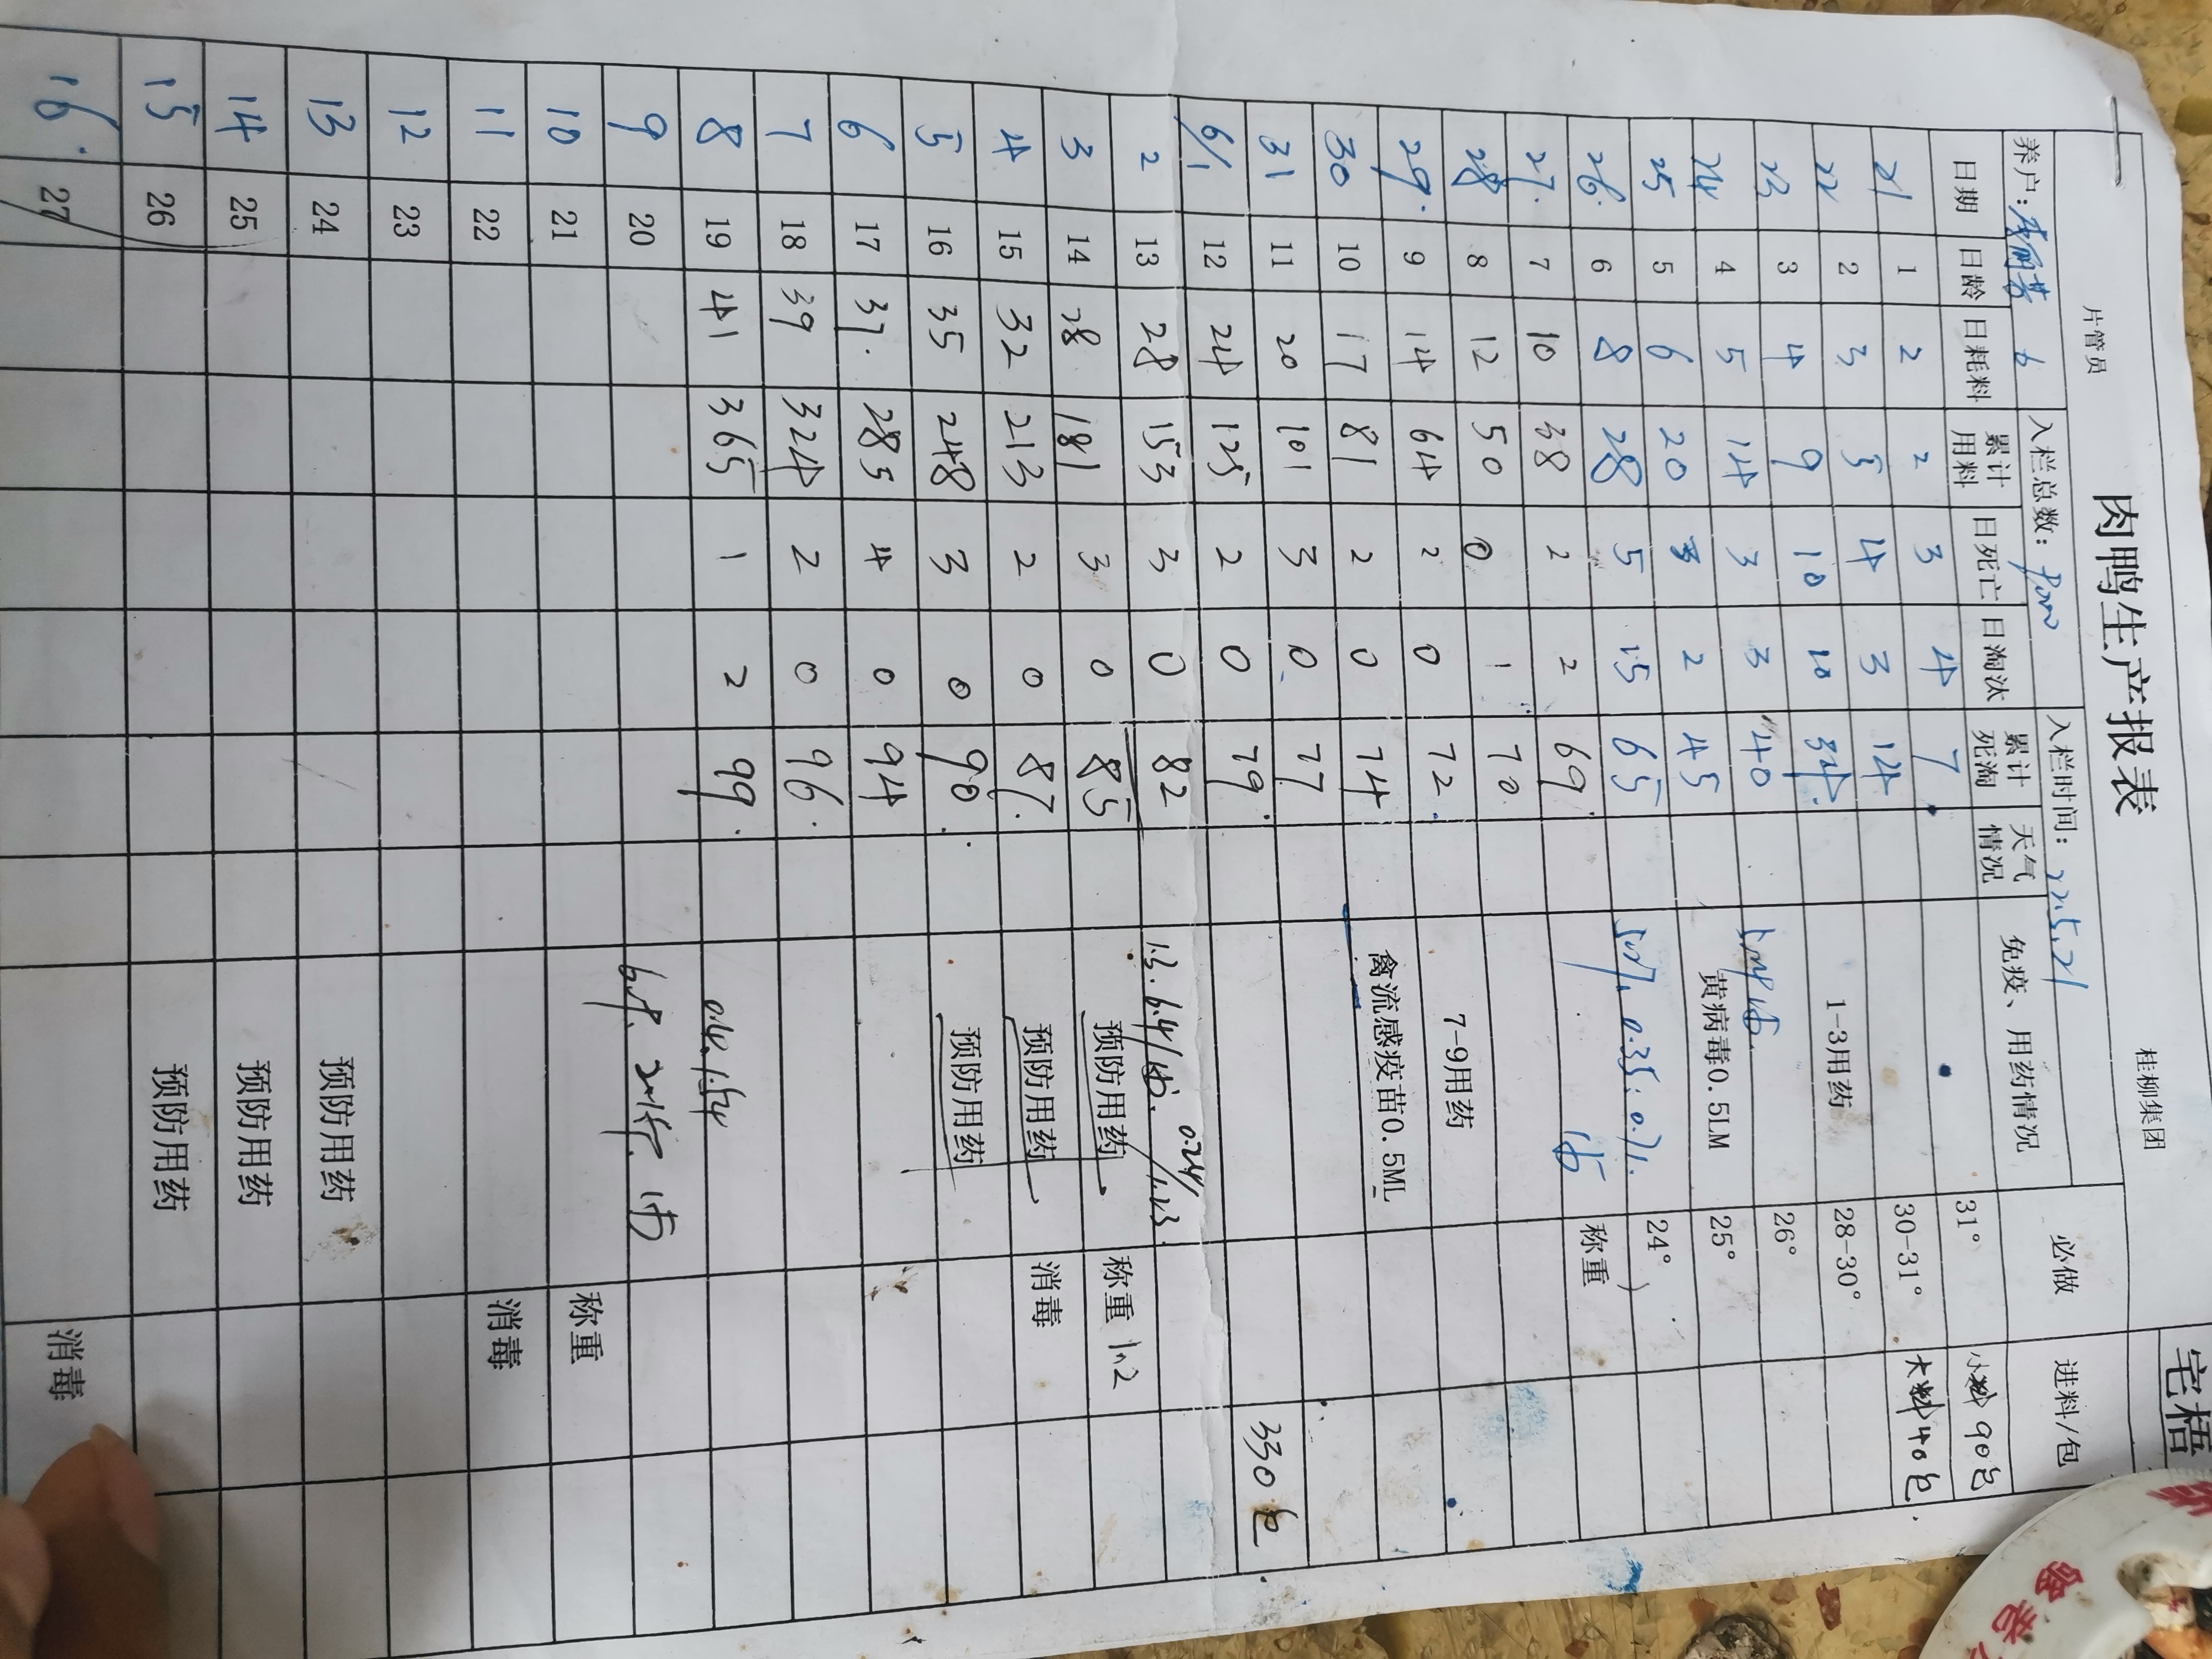 桂柳集团
宅梧
肉鸭生产报表
片管员
养户: 入栏总数: 入栏时间: 22.5.21
日期 日龄 日耗料 累计用料 日死亡 日淘汰 累计死淘 天气情况 免疫、用药情况 必做 进料/包
21 1 2 2 3 4 7 31° 小料90包
22 2 3 5 4 3 14 1-3用药 30-31° 大料40包
23 3 4 9 10 10 34 28-30°
24 4 5 14 3 3 40 26°
25 5 6 20 3 2 45 黄病毒0.5LM 25°
26 6 8 28 5 15 65 24°
27 7 10 38 2 2 69 称重
28 8 12 50 0 1 70 7-9用药
29 9 14 64 2 0 72
30 10 17 81 2 0 74 禽流感疫苗0.5ML
31 11 20 101 3 0 77
6/1 12 24 125 2 0 79 330包
2 13 28 153 3 0 82
3 14 28 181 3 0 85 预防用药 称重
4 15 32 213 2 0 87 预防用药 消毒
5 16 35 248 3 0 90 预防用药
6 17 37 285 4 0 94
7 18 39 324 2 0 96
8 19 41 365 1 2 99
9 20
10 21 称重
11 22 消毒
12 23
13 24 预防用药
14 25 预防用药
15 26 预防用药
16 27 消毒